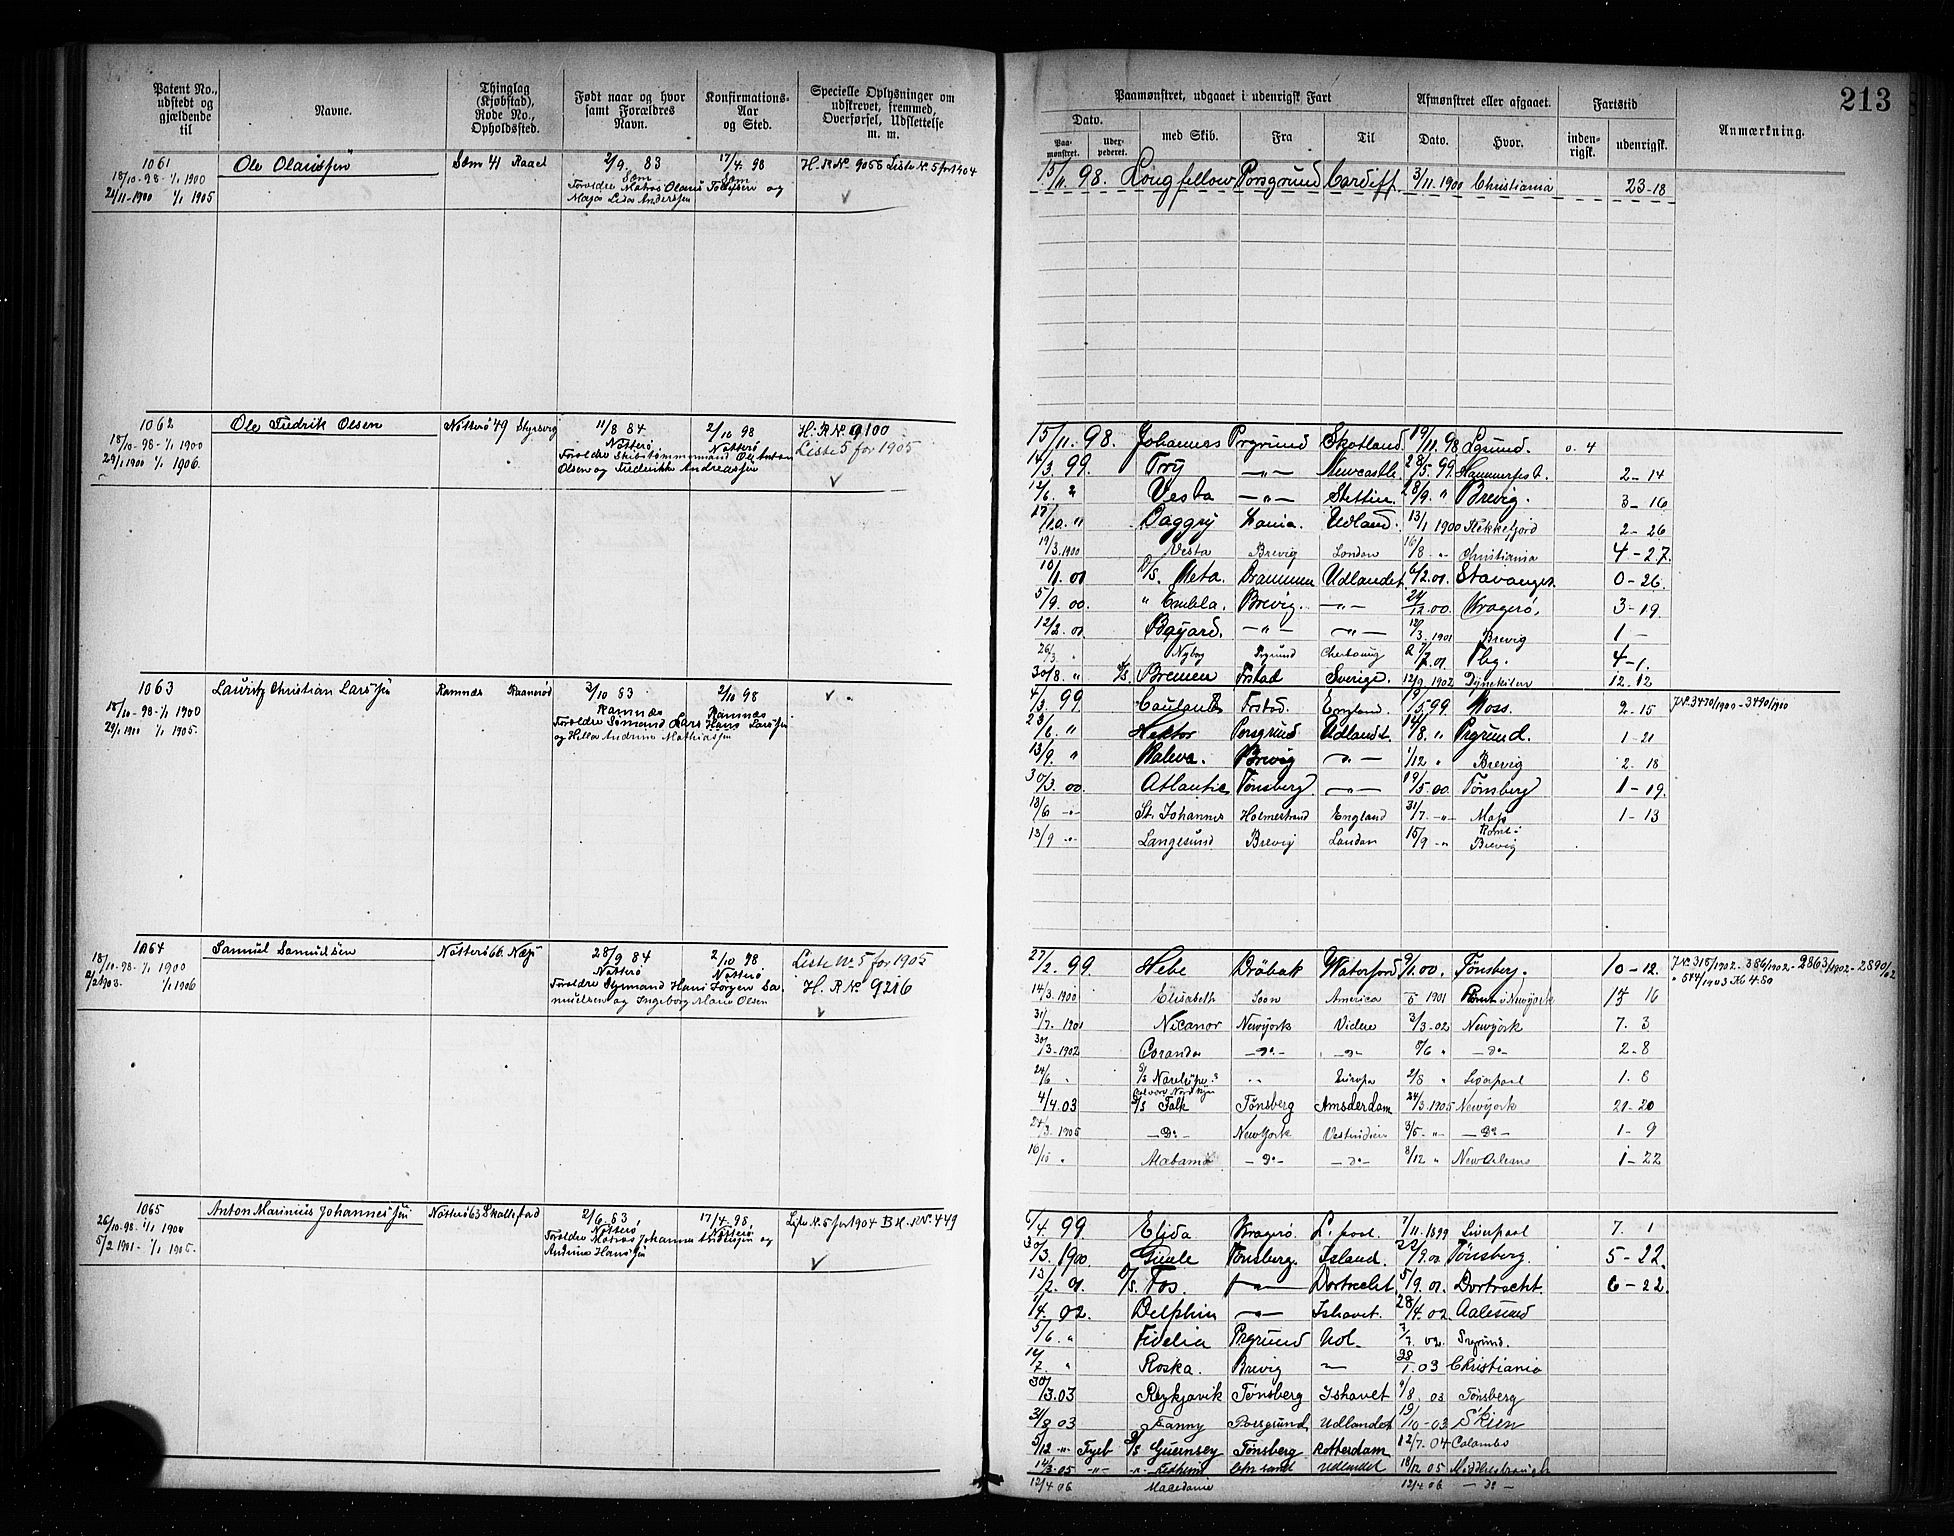 Patent No., udstedt og gjældende til
Navne.
Thinglag (Kjøbstad), Rode No., Opholdssted.
Født naar og hvor samt Forældres Navn.
Konfirmations-Aar og Sted.
Specielle Oplysninger om udskrevet, fremmed, Overførsel, Udslettelse m. m.
1061 Ole Olaussen Sem 41 Raael 2/9 83 17/4 98 H. R No. 9058 Liste No. 5 for 1904
18/10-98-1/1 1900 Sem Sem
24/11-1900 1/1 1905 Foreldre Matros Olaus Tollefsen og
Maja Lisa Anderssen
1062 Ole Fredrik Olsen Nøtterø 49 Styrsvig 11/8 84 2/10 98 H. R No. 9100
18/10-98-1/1 1900 Nøtterø Nøtterø Liste 5 for 1905
29/1 1900 1/1 1906. Foreldre Skibstømmermand Ole Anton
Olsen og Frederikke Andreassen
1063 Lauritz Christian Larssen Ramnæs 3/10 83 2/10 98
18/10-98-1/1 1900 Ramnæs Ramnæs
29/1 1900 1/1 1905. Foreldre Sømand Lars Hans Larssen
og Hella Andrine Mathiassen
1064 Samuel Samuelsen Nøtterø 60. 28/9 84 2/10 98 Liste No. 5 for 1905
18/10-98-1/1 1900 Nøtterø Nøtterø
1/1 1906 Foreldre Styrmand Hans Jørgen Sa- H. R No. 9216
muelsen og Ingeborg Marie Olsen
1065 Anton Marinius Johannessen Nøtterø 63 Skallestad 2/6 83 17/4 98, Liste No. 5 for 1904 B H. R No. 449
26/10-98-1/1 1900 Nøtterø Nøtterø
5/2 1901-1/1 1905. Foreldre Matros Johannes Anderssen og
Andrine Hanssen
213
Paamønstret, udgaaet i udenrigsk Fart
Afmønstret eller afgaaet.
Fartstid
Anmærkning.
Dato. med Skib. Fra Til Dato. Hvor. inden-rigsk. udenrigsk.
Paa-mønstret. Uder-pederet.
15/11. 98. Longfellow Porsgrund Cardiff 3/11 1900 Christiania 23-18
15/11. 98. Johannes Prgrund Skotland 19/11 98 Lgsund. 0. 4
14/3. 99. Try -"- Newcastle 28/5. 99. Hammerfest. 2-14
12/6. " Vesta -"- Stettin. 28/9. " Brevig. 3-16
17/10. " Daggry Udland. 13/1 1900 Flekkefjord 2-26
19/3. 1900 Vesta Brevig London 16/8. " Christiania 4-27.
10/1. 01 D/S. Meta. Drammen Udlandet 6/2. 01. Stavanger 0-26.
5/9. 00. " Brevig. -"- 24/12. 00. Kragerø. 3-19.
12/2. 01 Bayard. -"- -"- 12/3. 1901 Brevig 1 -
26/3 " Nyborg Prgrund Cherbourg 27/7. 01. Tbg. 4-1.
30/8. " D/S. Bremen Frstad Sverige. 12/9 1902 Dynekilen 12. 12
4/3. 99. Frstad. England. 19/5 99. Moss. 2-15 J.No. 3470/1900-3490/1900
23/6. " Hektor Porsgrund Udlandet. 14/8. " Prgrund. 1-21
13/9. " Brevig -"- 1/12 " Brevig 2. 18
30/3. 00. Atlantic Tønsberg -"- 19/5. 00. Tønsberg 1-19.
18/6 -"- St. Johannes Holmestrand England 31/7. -"- Moss 1-13
13/9 -"- Langesund Brevig London 15/9 -"- Rømt i Brevig
27/2. 99. Hebe Drøbak Waterford 9/1. 00. Tønsberg. 10-12. J.No. 315/1902-386/1902-2863/1902-2890/02
14/3. 1900 Elisabeth Soon America 1901 Rømt i Newyork 16
31/7. 1901 Nicanor Newyork Videre 3/3-02 Newyork 7. 3
30/3-1902 -Do- -Do- 8/6 " -Do- 2-8
24/6 " S/S " Europa 2/8 " Liverpool 1. 8
4/4. 03 S/S Falk Tønsberg Amsderdam 24/3. 1905 Newyork 21-20
24/3. 1905 -Do- NewYork Vestindien 3/5-"- -Do- 1-9
16/10 " Alabama -Do- -Do- 8/12 " NewOrleans 1-22
6/4. 99. Elida Kragerø. L. pool. 7/11. 1899 Liverpool 7. 1
30/3. 1900 Gimle Tønsberg. Island. 22/9. 00 Tønsberg. 5-22.
13/2. 01. D/S. Fos. -"- Dortrecht 5/9. 01. Dortrecht. 6-22.
1/4. 02. Delphin -"- Ishavet. 28/4. 02. Aalesund
5/6. " Fidelia Prgrund Hol. 3/7. 02.
14/7. " Roska. Brevig -"- 28/1. 03 Christiania
30/3. 03 Reykjavik Tønsberg Ishavet 9/8. 03 Tønsberg
31/8 03 Fanny Porsgrund, Udlandet 19/10-03 Skien
5/12 -"- S/S Guernsey Tønsberg Rotterdam 12/7. 04 Colombo
14/3. 05 -"- -"- Udlandet 18/12 05 Middlesbrough
12/4 06 Macedonia 12/4 06 -Do-